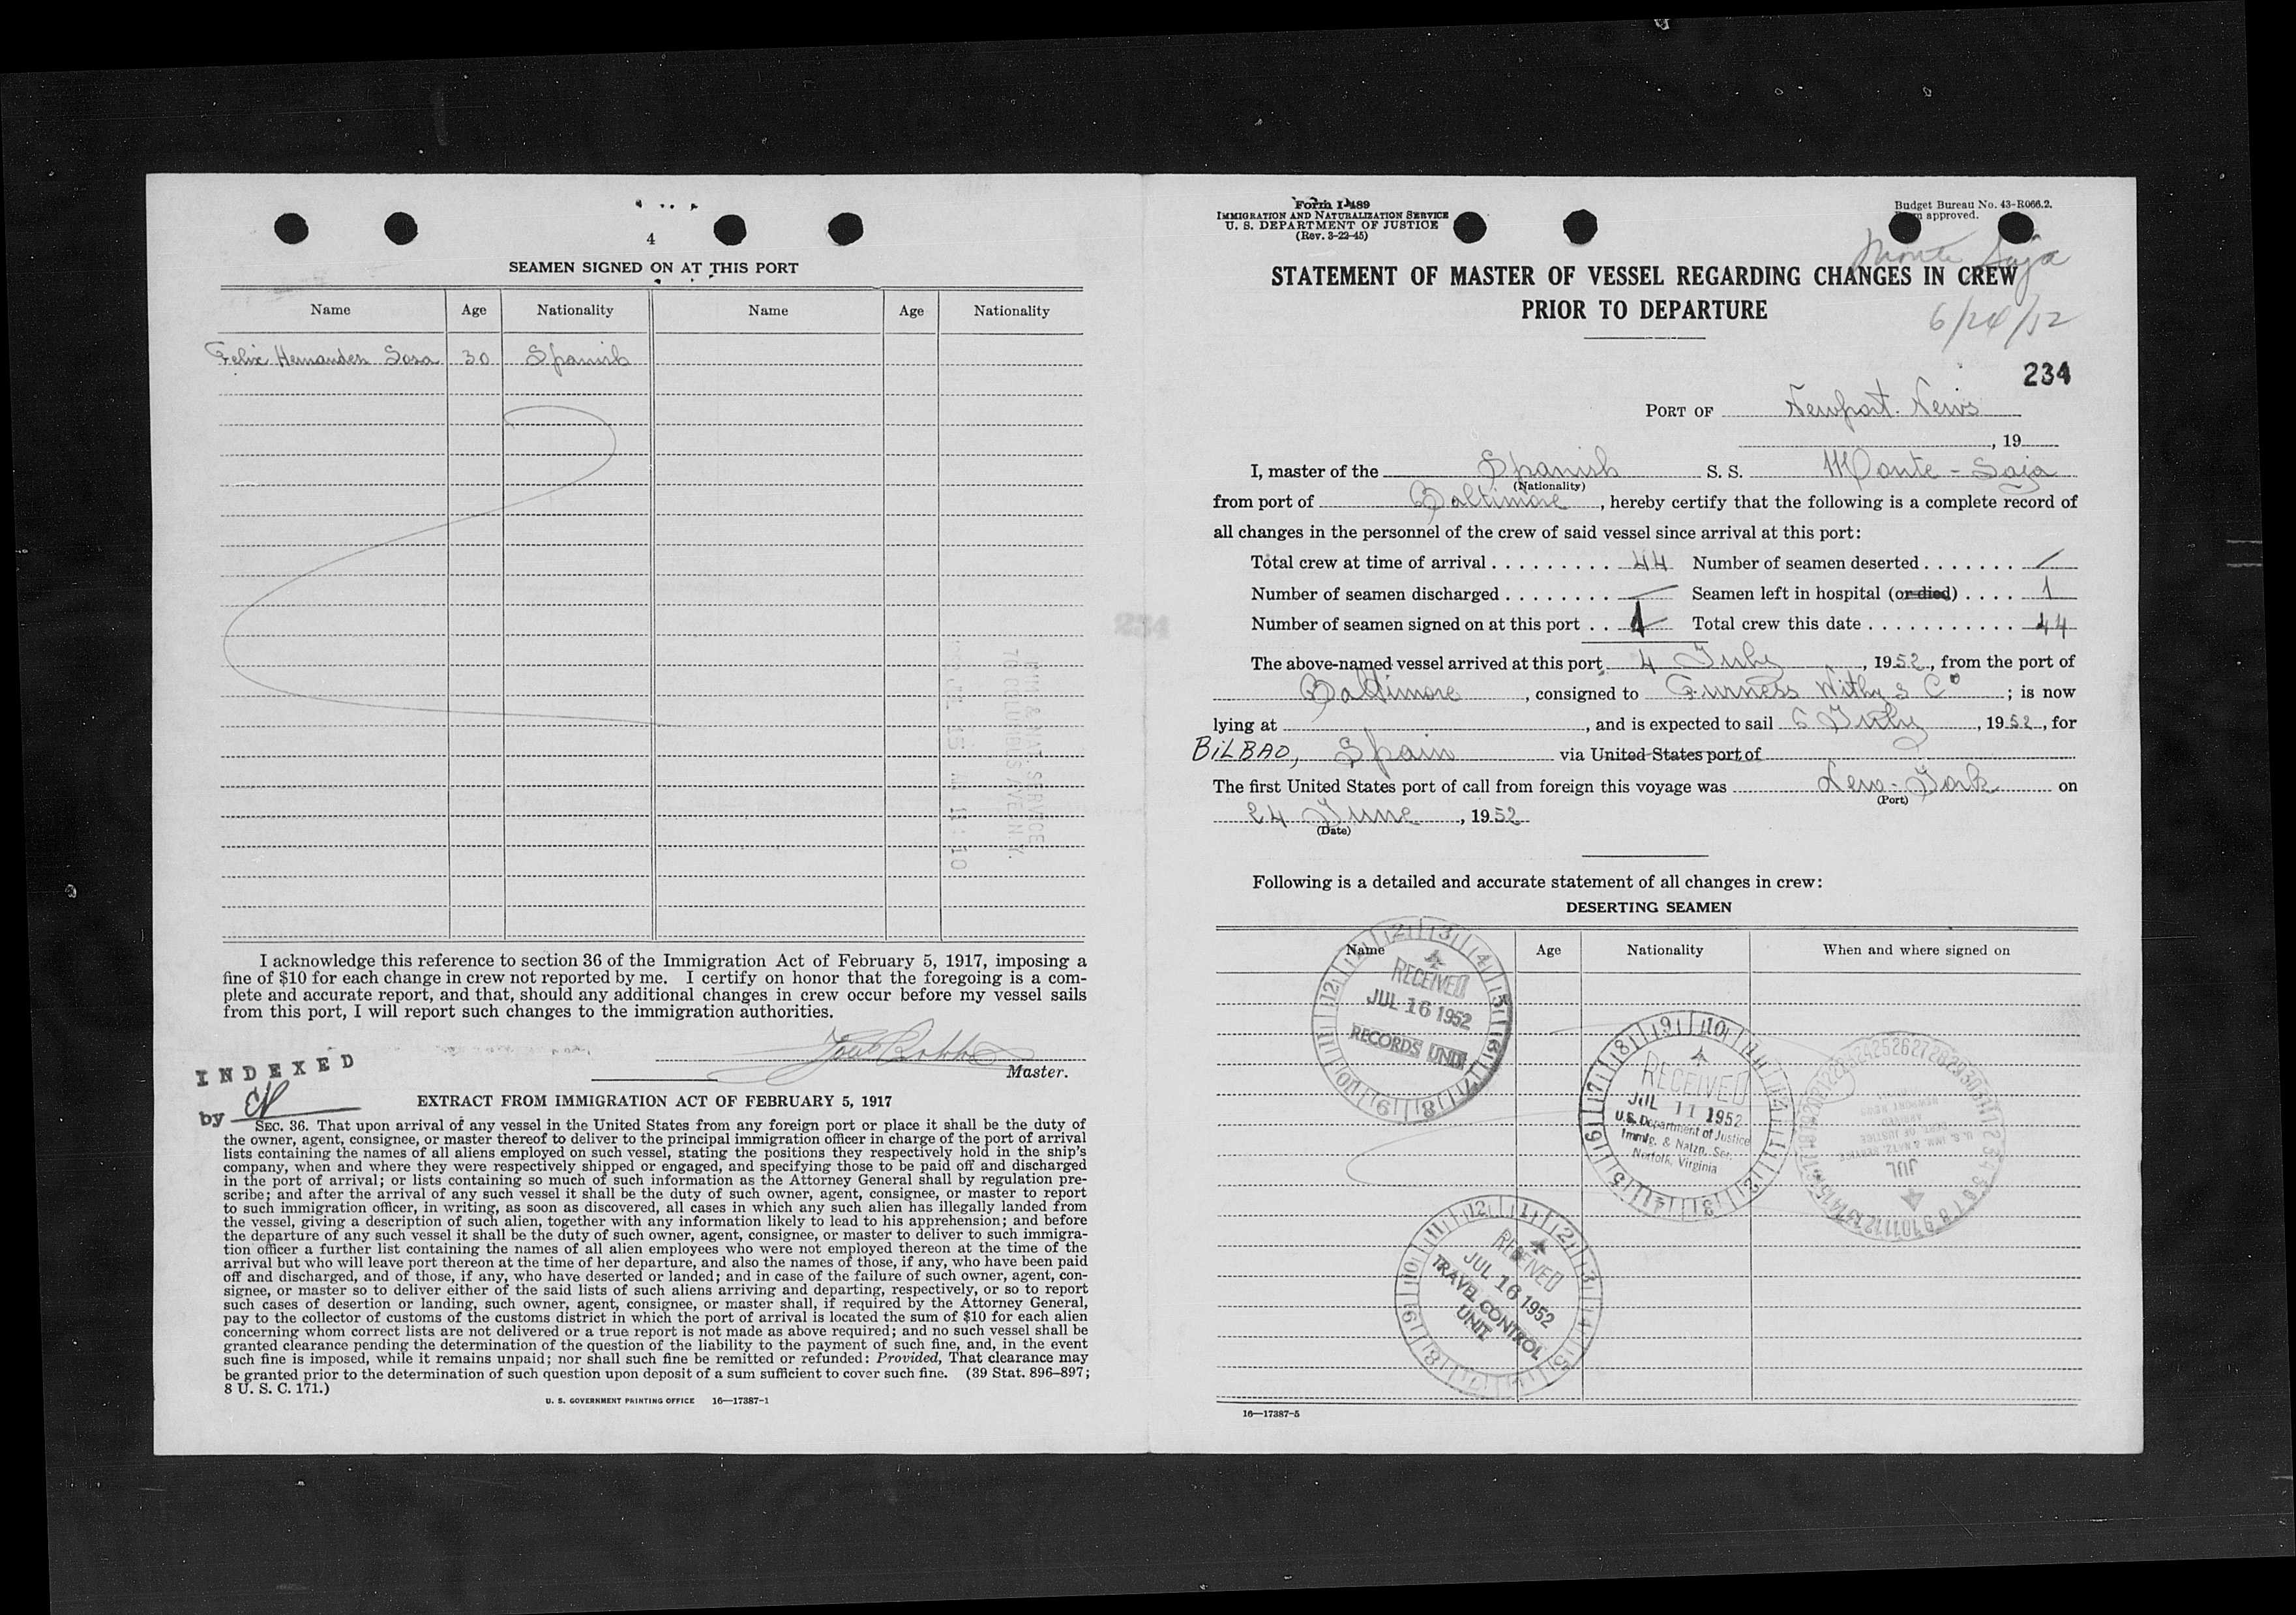 4
SEAMEN SIGNED ON AT THIS PORT
Name Age Nationality Name Age Nationality
Felix Hernandez Sosa 30 Spanish
I acknowledge this reference to section 36 of the Immigration Act of February 5, 1917, imposing a
fine of $10 for each change in crew not reported by me. I certify on honor that the foregoing is a com-
plete and accurate report, and that, should any additional changes in crew occur before my vessel sails
from this port, I will report such changes to the immigration authorities.
Master.
INDEXED
by
EXTRACT FROM IMMIGRATION ACT OF FEBRUARY 5, 1917
SEC. 36. That upon arrival of any vessel in the United States from any foreign port or place it shall be the duty of
the owner, agent, consignee, or master thereof to deliver to the principal immigration officer in charge of the port of arrival
lists containing the names of all aliens employed on such vessel, stating the positions they respectively hold in the ship's
company, when and where they were respectively shipped or engaged, and specifying those to be paid off and discharged
in the port of arrival; or lists containing so much of such information as the Attorney General shall by regulation pre-
scribe; and after the arrival of any such vessel it shall be the duty of such owner, agent, consignee, or master to report
to such immigration officer, in writing, as soon as discovered, all cases in which any such alien has illegally landed from
the vessel, giving a description of such alien, together with any information likely to lead to his apprehension; and before
the departure of any such vessel it shall be the duty of such owner, agent, consignee, or master to deliver to such immigra-
tion officer a further list containing the names of all alien employees who were not employed thereon at the time of the
arrival but who will leave port thereon at the time of her departure, and also the names of those, if any, who have been paid
off and discharged, and of those, if any, who have deserted or landed; and in case of the failure of such owner, agent, con-
signee, or master so to deliver either of the said lists of such aliens arriving and departing, respectively, or so to report
such cases of desertion or landing, such owner, agent, consignee, or master shall, if required by the Attorney General,
pay to the collector of customs of the customs district in which the port of arrival is located the sum of $10 for each alien
concerning whom correct lists are not delivered or a true report is not made as above required; and no such vessel shall be
granted clearance pending the determination of the question of the liability to the payment of such fine, and, in the event
such fine is imposed, while it remains unpaid; nor shall such fine be remitted or refunded: Provided, That clearance may
be granted prior to the determination of such question upon deposit of a sum sufficient to cover such fine. (39 Stat. 896–897;
8 U. S. C. 171.)
U. S. GOVERNMENT PRINTING OFFICE 16—17387-1
Form I-489
IMMIGRATION AND NATURALIZATION SERVICE
U. S. DEPARTMENT OF JUSTICE
(Rev. 3-22-45)
Budget Bureau No. 43-R066.2.
approved.
Monte Saja
STATEMENT OF MASTER OF VESSEL REGARDING CHANGES IN CREW
PRIOR TO DEPARTURE
6/24/52
234
PORT OF Newport News
, 19
I, master of the Spanish S. S. Monte - Saja
(Nationality)
from port of Baltimore, hereby certify that the following is a complete record of
all changes in the personnel of the crew of said vessel since arrival at this port:
Total crew at time of arrival 44 Number of seamen deserted —
Number of seamen discharged — Seamen left in hospital (or died) 1
Number of seamen signed on at this port 1 Total crew this date 44
The above-named vessel arrived at this port 4 July, 1952, from the port of
Baltimore, consigned to Furness Withy & Co; is now
lying at , and is expected to sail 6 July, 1952, for
BILBAO, Spain via United States port of
The first United States port of call from foreign this voyage was New-York on
(Port)
24 June, 1952
(Date)
Following is a detailed and accurate statement of all changes in crew:
DESERTING SEAMEN
Name Age Nationality When and where signed on
RECEIVED
JUL 16 1952
RECORDS UNIT
RECEIVED
JUL 11 1952
U.S. Department of Justice
Immig. & Natzn. Ser.
Norfolk, Virginia
JUL
RECEIVED
JUL 16 1952
TRAVEL CONTROL
UNIT
16—17387-5